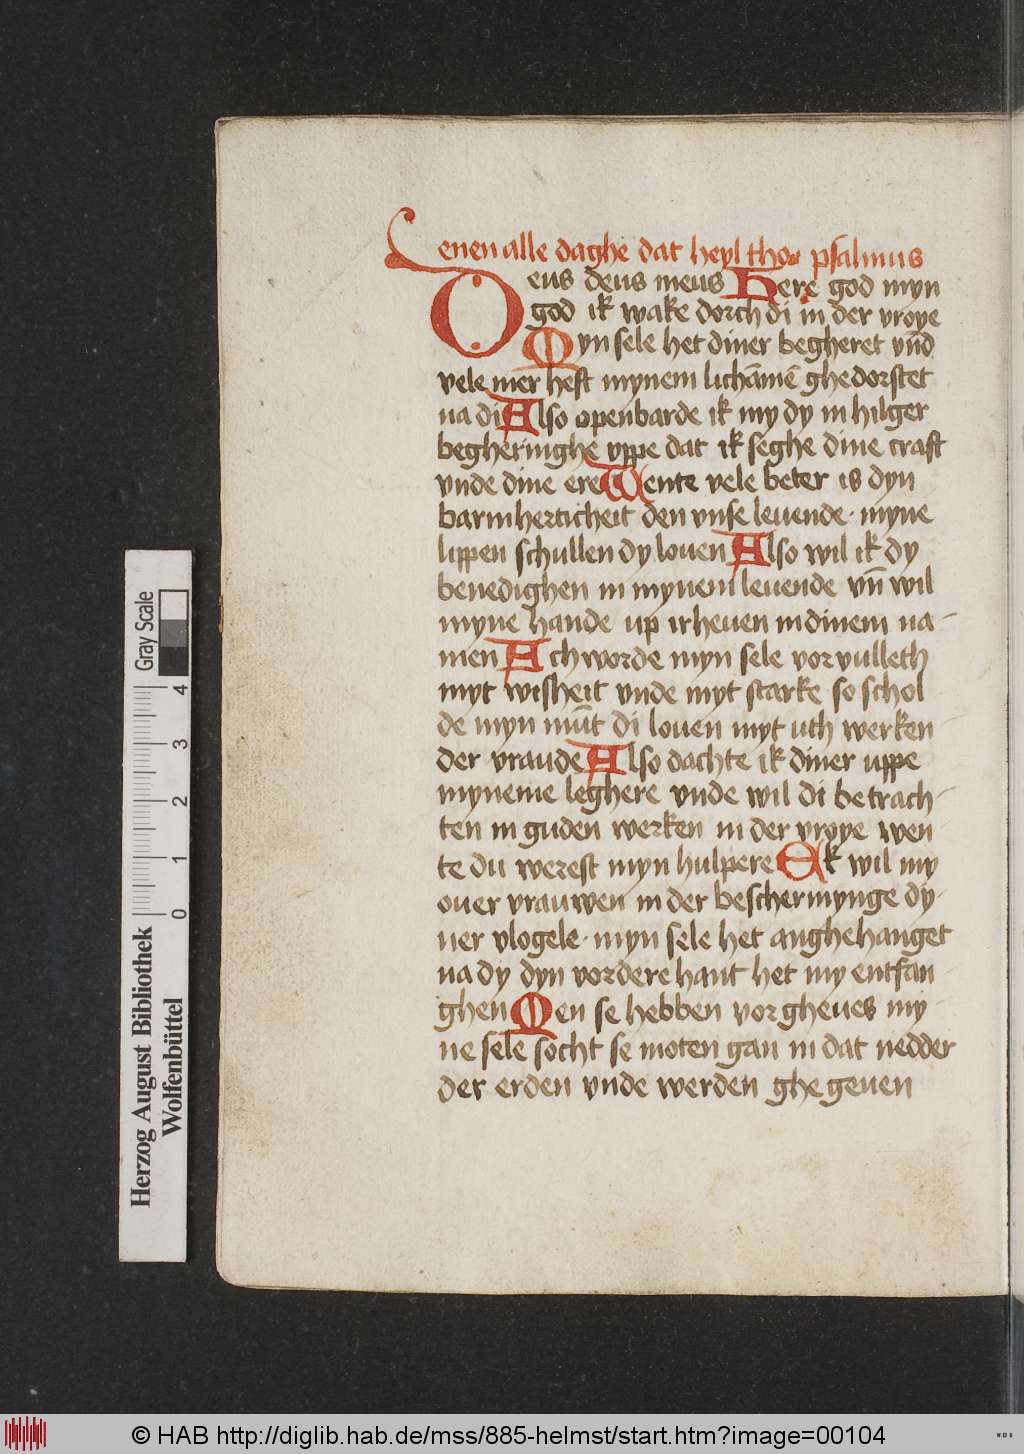 enen alle daghe dat heyl tho psalmus
Deus deus meus Here god myn
god ik wake dorch di in der vroye
Myn sele het diner begheret vn̄d
vele mer heft mynem lichāmē ghedorstet
na di Also openbarde ik my dy in hilger
begheringhe vppe dat ik seghe dine craft
vnde dine ere Wente vele beter is dyn
barmherticheit den vnse leuende · myne
lippen schullen dy louen Also wil ik dy
benedighen in mynem leuende vn̄ wil
myne hande up irheuen in dinem na-
men Ach worde myn sele vorvulleth
myt wisheit vnde myt starke so schol
de myn mūt di louen myt uth werken
der vraude Also dachte ik diner uppe
myneme leghere vnde wil di betrach-
ten in guden werken in der vroye wen-
te du werest myn hulpere Ek wil my
ouer vrauwen in der beschermynge dy-
ner vlogele · myn sele het anghehanget
na dy dyn vordere hant het my entfan-
ghen Men se hebben vorgheues my-
ne sele socht se moten gan in dat nedder
der erden vnde werden ghegeuen
Gray Scale
4
3
2
1
0
Herzog August Bibliothek
Wolfenbüttel
© HAB http://diglib.hab.de/mss/885-helmst/start.htm?image=00104